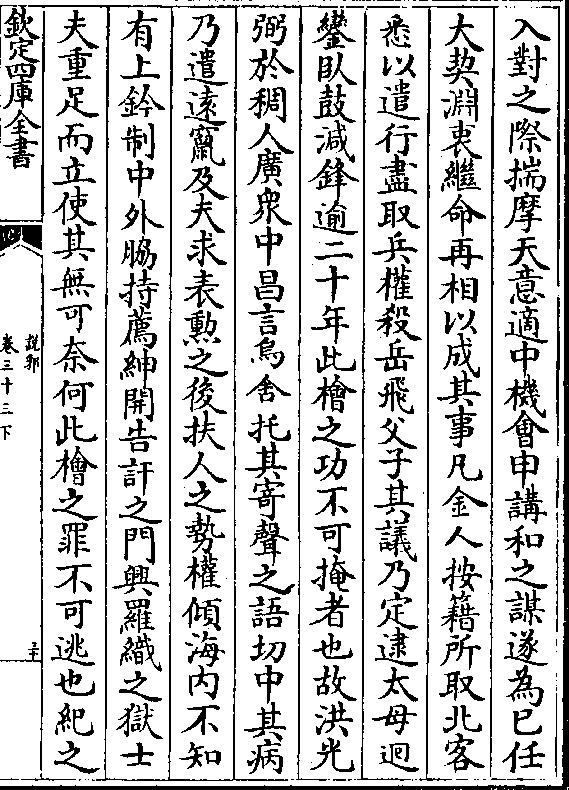 入對之際揣摩天意適中機㑹申講和之謀遂為已任
大契淵衷繼命再相以成其事凡金人按籍所取北客
悉以遣行盡取兵權殺岳飛父子其議乃定逮太母迴
鑾臥鼓減鋒逾二十年此檜之功不可掩者也故洪光
弼於稠人廣衆中昌言烏舍托其寄聲之語切中其病
乃遣逺竄及夫求表勲之後扶人之勢權傾海内不知
有上鈐制中外脇持薦紳開告訐之門興羅織之獄士
夫重足而立使其無可奈何此檜之罪不可逃也紀之
欽定四庫全書
說郛
卷三十三下